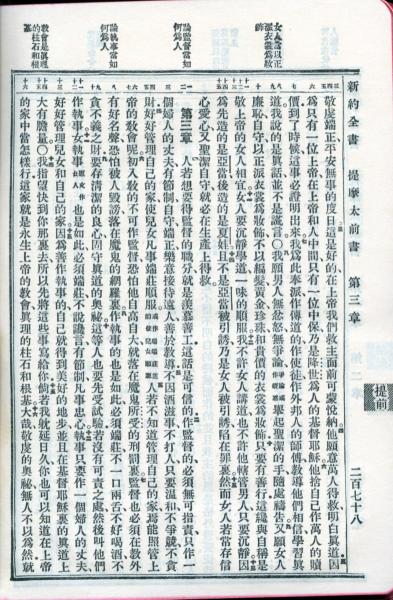 新約全書 提摩太前書 第三章 二百七十八
提前
女人當以正派衣裳為飾
論監督當如何為人
論執事當如何為人
教會是真理的柱石和根基
敬虔端正平安無事的度日這是好的在上帝我們救主面前可蒙悅納他願意萬人得救明白真道因
為只有一位上帝在上帝和人中間只有一位中保乃是降世為人的基督耶穌他捨自己作萬人的贖
價到了時候這事必證明出來我為此奉派作傳道的作使徒作外邦人的師傅教導他們相信學習真
道我說的是真話並不是謊言〇我願男人無忿怒無爭論爭論或作疑惑舉起聖潔的手隨處禱告又願女人
廉恥自守以正派衣裳為妝飾不以編髮黃金珍珠和貴價的衣裳為妝飾只要有善行這纔與自稱是
敬上帝的女人相宜女人要沉靜學道一味的順服我不許女人講道也不許他轄管男人只要沉靜因
為先造的是亞當後造的是夏娃且不是亞當被引誘乃是女人被引誘陷在罪裏然而女人若常存信
心愛心又聖潔自守就必在生產上得救
第三章 人若想要得監督的職分就是羨慕善工這話是可信的作監督的必須無可指責只作一
個婦人的丈夫有節制自守端正樂意接待遠人善於教導不因酒滋事不打人只要溫和不爭競不貪
財好好管理自己的家使兒女凡事端莊順服人若不知道管理自己的家焉能照管上
帝的教會呢初入教的不可作監督恐怕他自高自大就落在魔鬼所受的刑罰裏監督也必須在教外
有好名聲恐怕被人毀謗落在魔鬼的網羅裏作執事的也是如此必須端莊不一口兩舌不好喝酒不
貪不義之財要存清潔的良心固守真道的奧祕這等人也要先受試驗若沒有可責之處然後叫他們
作執事女執事原文作女人也是如此必須端莊不說讒言有節制凡事忠心執事只要作一個婦人的丈夫
好好管理兒女和自己的家因為善作執事的自己就得到美好的地步並且在基督耶穌裏的真道上
大有膽量〇我指望快到你那裏去所以先將這些事寫給你倘若我躭延日久你也可以知道在上帝
的家中當怎樣行這家就是永生上帝的教會真理的柱石和根基大哉敬虔的奧祕無人不以為然就